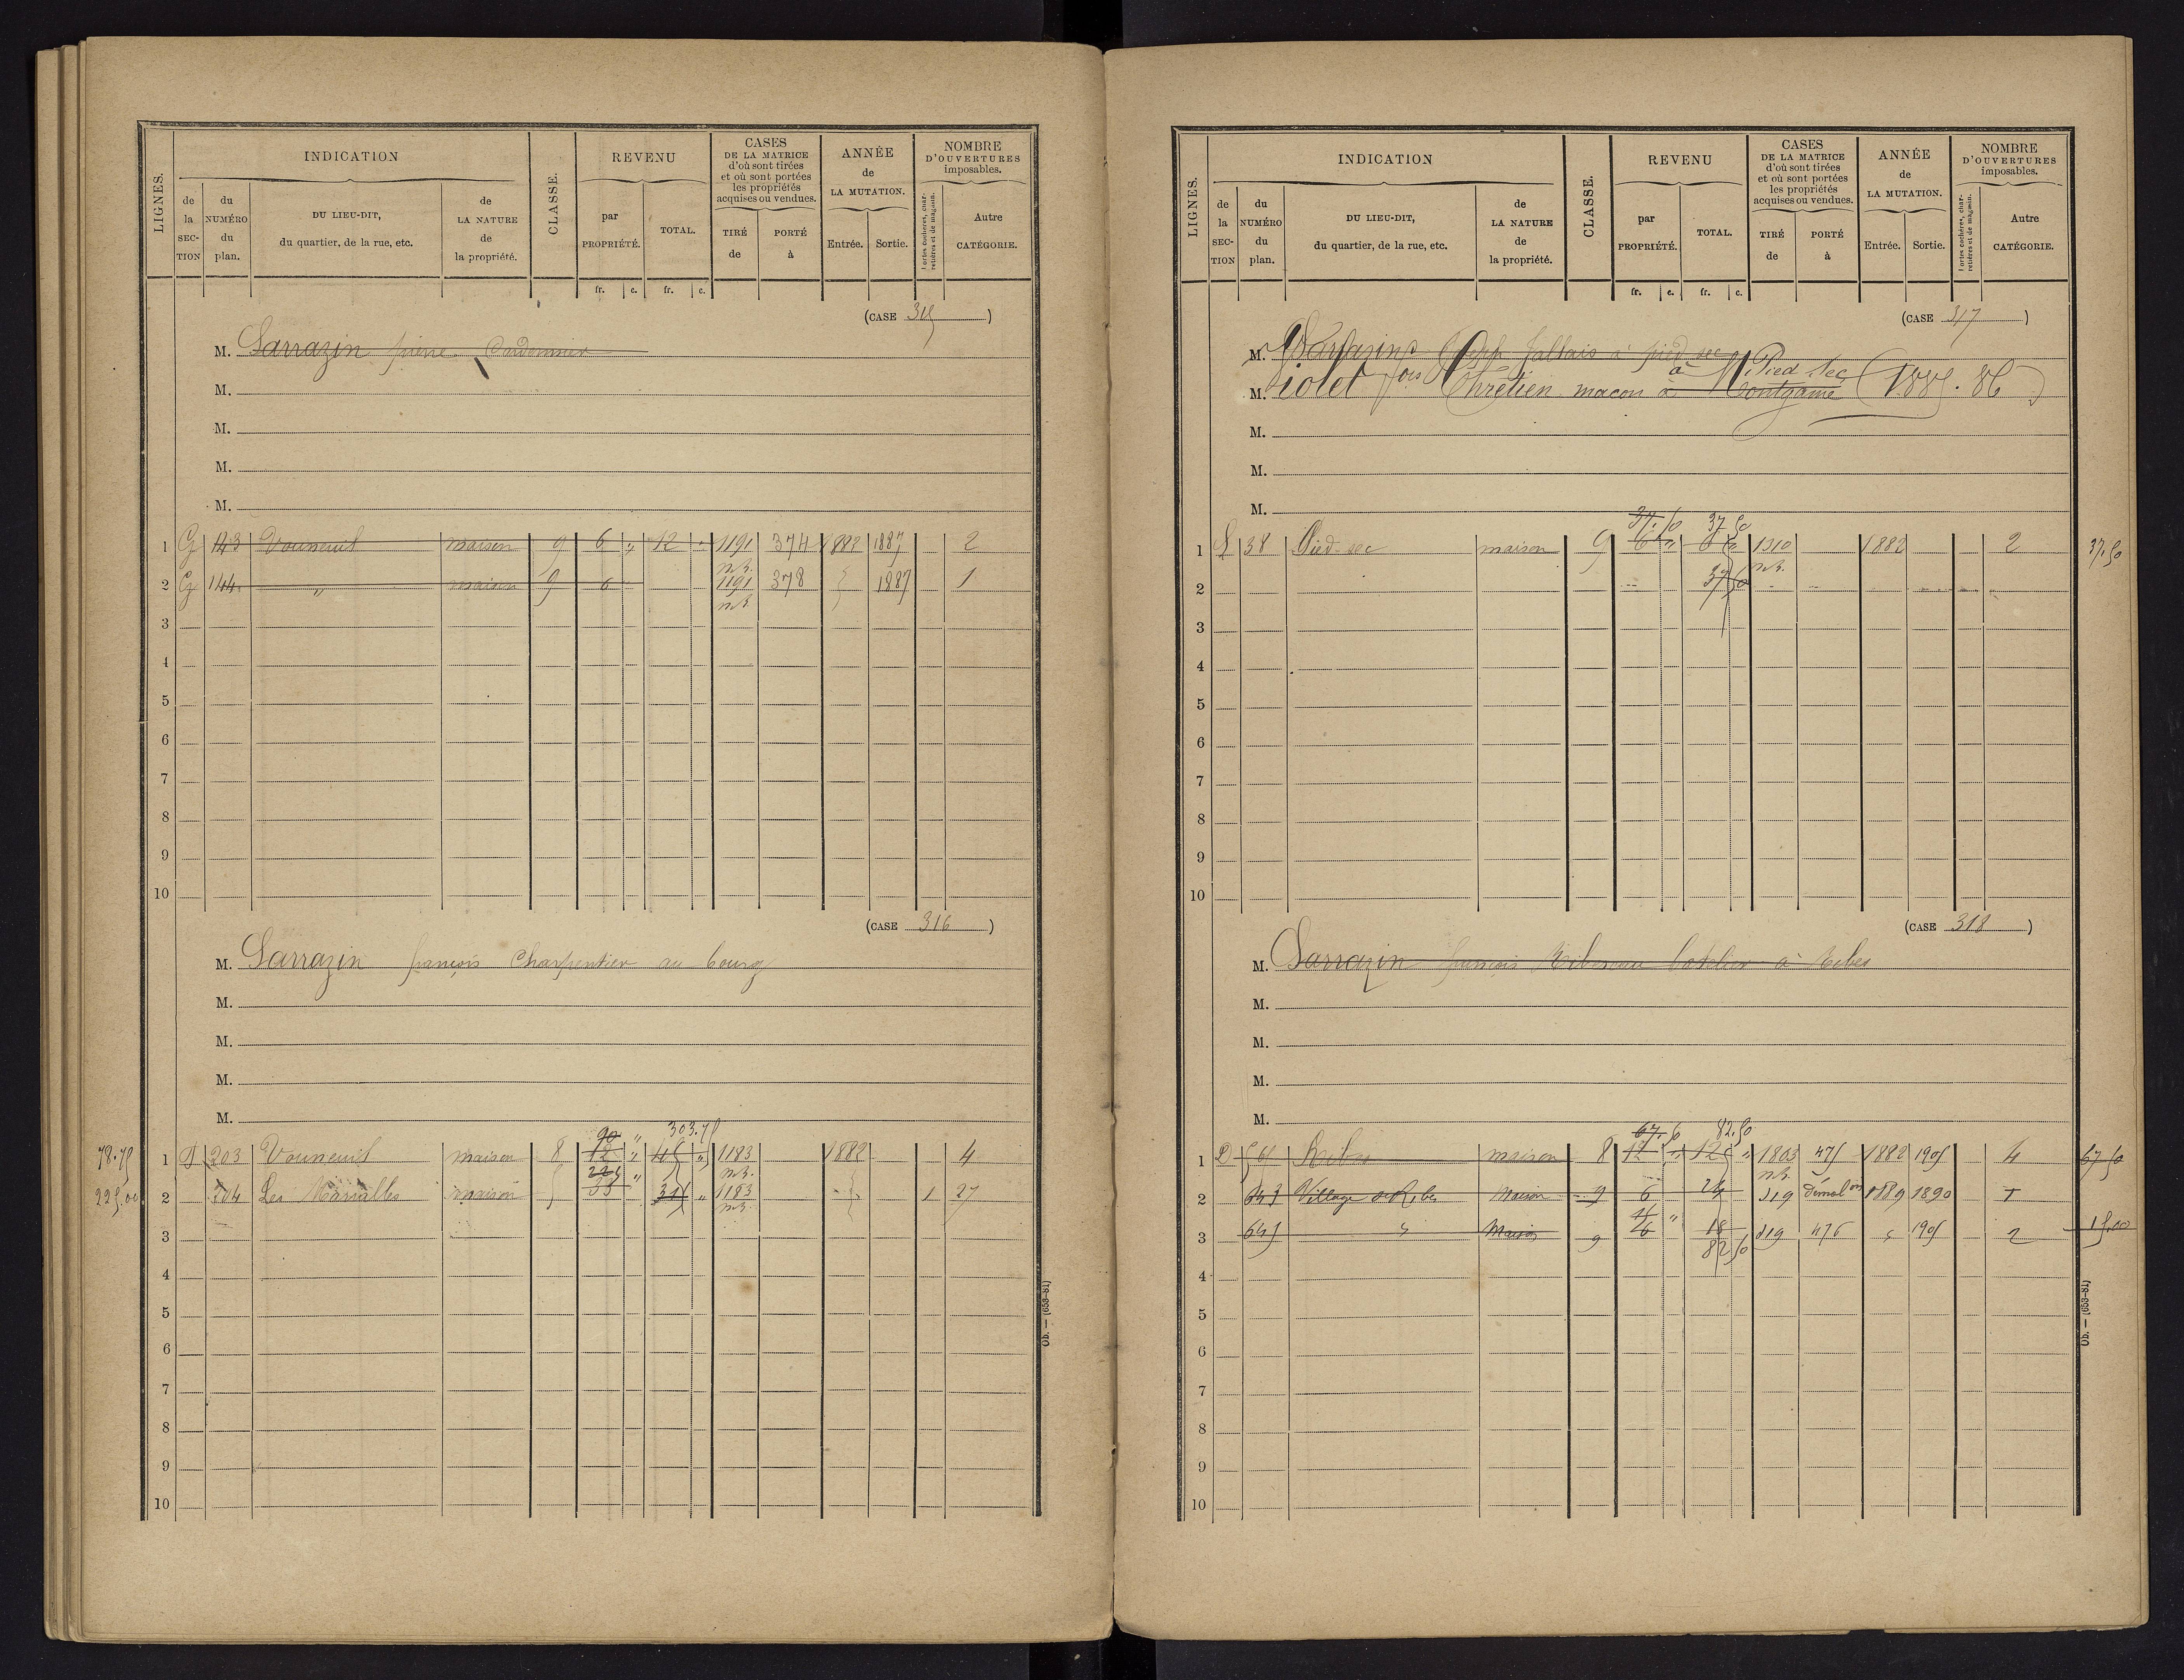 LIGNES. INDICATION CLASSE. REVENU CASES DE LA MATRICE d'où sont tirées et où sont portées les propriétés acquises ou vendues. ANNÉE de LA MUTATION. NOMBRE D'OUVERTURES imposables.
de la SECTION du NUMÉRO du plan. DU LIEU-DIT, du quartier, de la rue, etc. de LA NATURE de la propriété. par PROPRIÉTÉ. TOTAL. TIRÉ de PORTÉ à Entrée. Sortie. Portes cochères, charretières et de magasin. Autre CATÉGORIE.
fr. c. fr. c.
(CASE 315)
M. Sarrazin pierre Cordonnier
M.
M.
M.
M.
1 G 143 Vouneuil maison 9 6 " 12 " 1191 374 1882 1887 2
n.b.
2 G 144 " maison 9 6 1191 378 1887 1
n.b.
3
4
5
6
7
8
9
10
(CASE 316)
M. Sarrazin françois Charpentier au bourg
M.
M.
M.
M.
90 " 303.75
78.75 1 203 Vouneuil maison 8 12 " 45 " 1183 1882 4
225 n.b.
225.00 2 204 Les maison 33 " " 1183 1 27
n.b.
3
4
5
6
7
8
9
10
Ob. — (653-81)
LIGNES. INDICATION CLASSE. REVENU CASES DE LA MATRICE d'où sont tirées et où sont portées les propriétés acquises ou vendues. ANNÉE de LA MUTATION. NOMBRE D'OUVERTURES imposables.
de la SECTION du NUMÉRO du plan. DU LIEU-DIT, du quartier, de la rue, etc. de LA NATURE de la propriété. par PROPRIÉTÉ. TOTAL. TIRÉ de PORTÉ à Entrée. Sortie. Portes cochères, charretières et de magasin. Autre CATÉGORIE.
fr. c. fr. c.
(CASE 317)
M. Sarrazin à pied sec
à Pied Sec
M. Piolet fois Chrétien maçon à Montgamé (1885.86)
M.
M.
M.
37.50 37 50
1 38 Pied-sec maison 9 6 " 6 " 1310 1882 2 37.50
n.b.
2 37 50
3
4
5
6
7
8
9
10
(CASE 318)
M. Sarrazin françois batelier à Ribes
M.
M.
M.
M.
67.50 82.50
1 D 561 Ribes maison 8 12 " 12 " 1803 475 1882 1905 4 67 50
n.b.
2 643 Village de Ribes Maison 9 6 24 319 démolon 1889 1890 1
15 "
3 645 " Maison 9 6 18 319 476 " 1905 2 15.00
82 50
4
5
6
7
8
9
10
Ob. — (653-81)